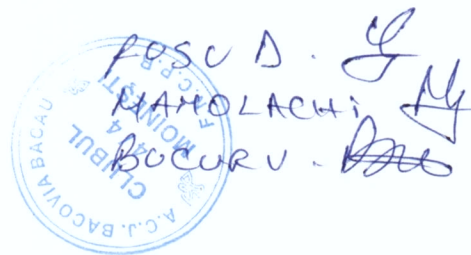 RUSU D.
MANOLACHI
BUCUR V.
A.C.J. BACOVIA BACAU
CLUBUL
44
MOINEȘTI